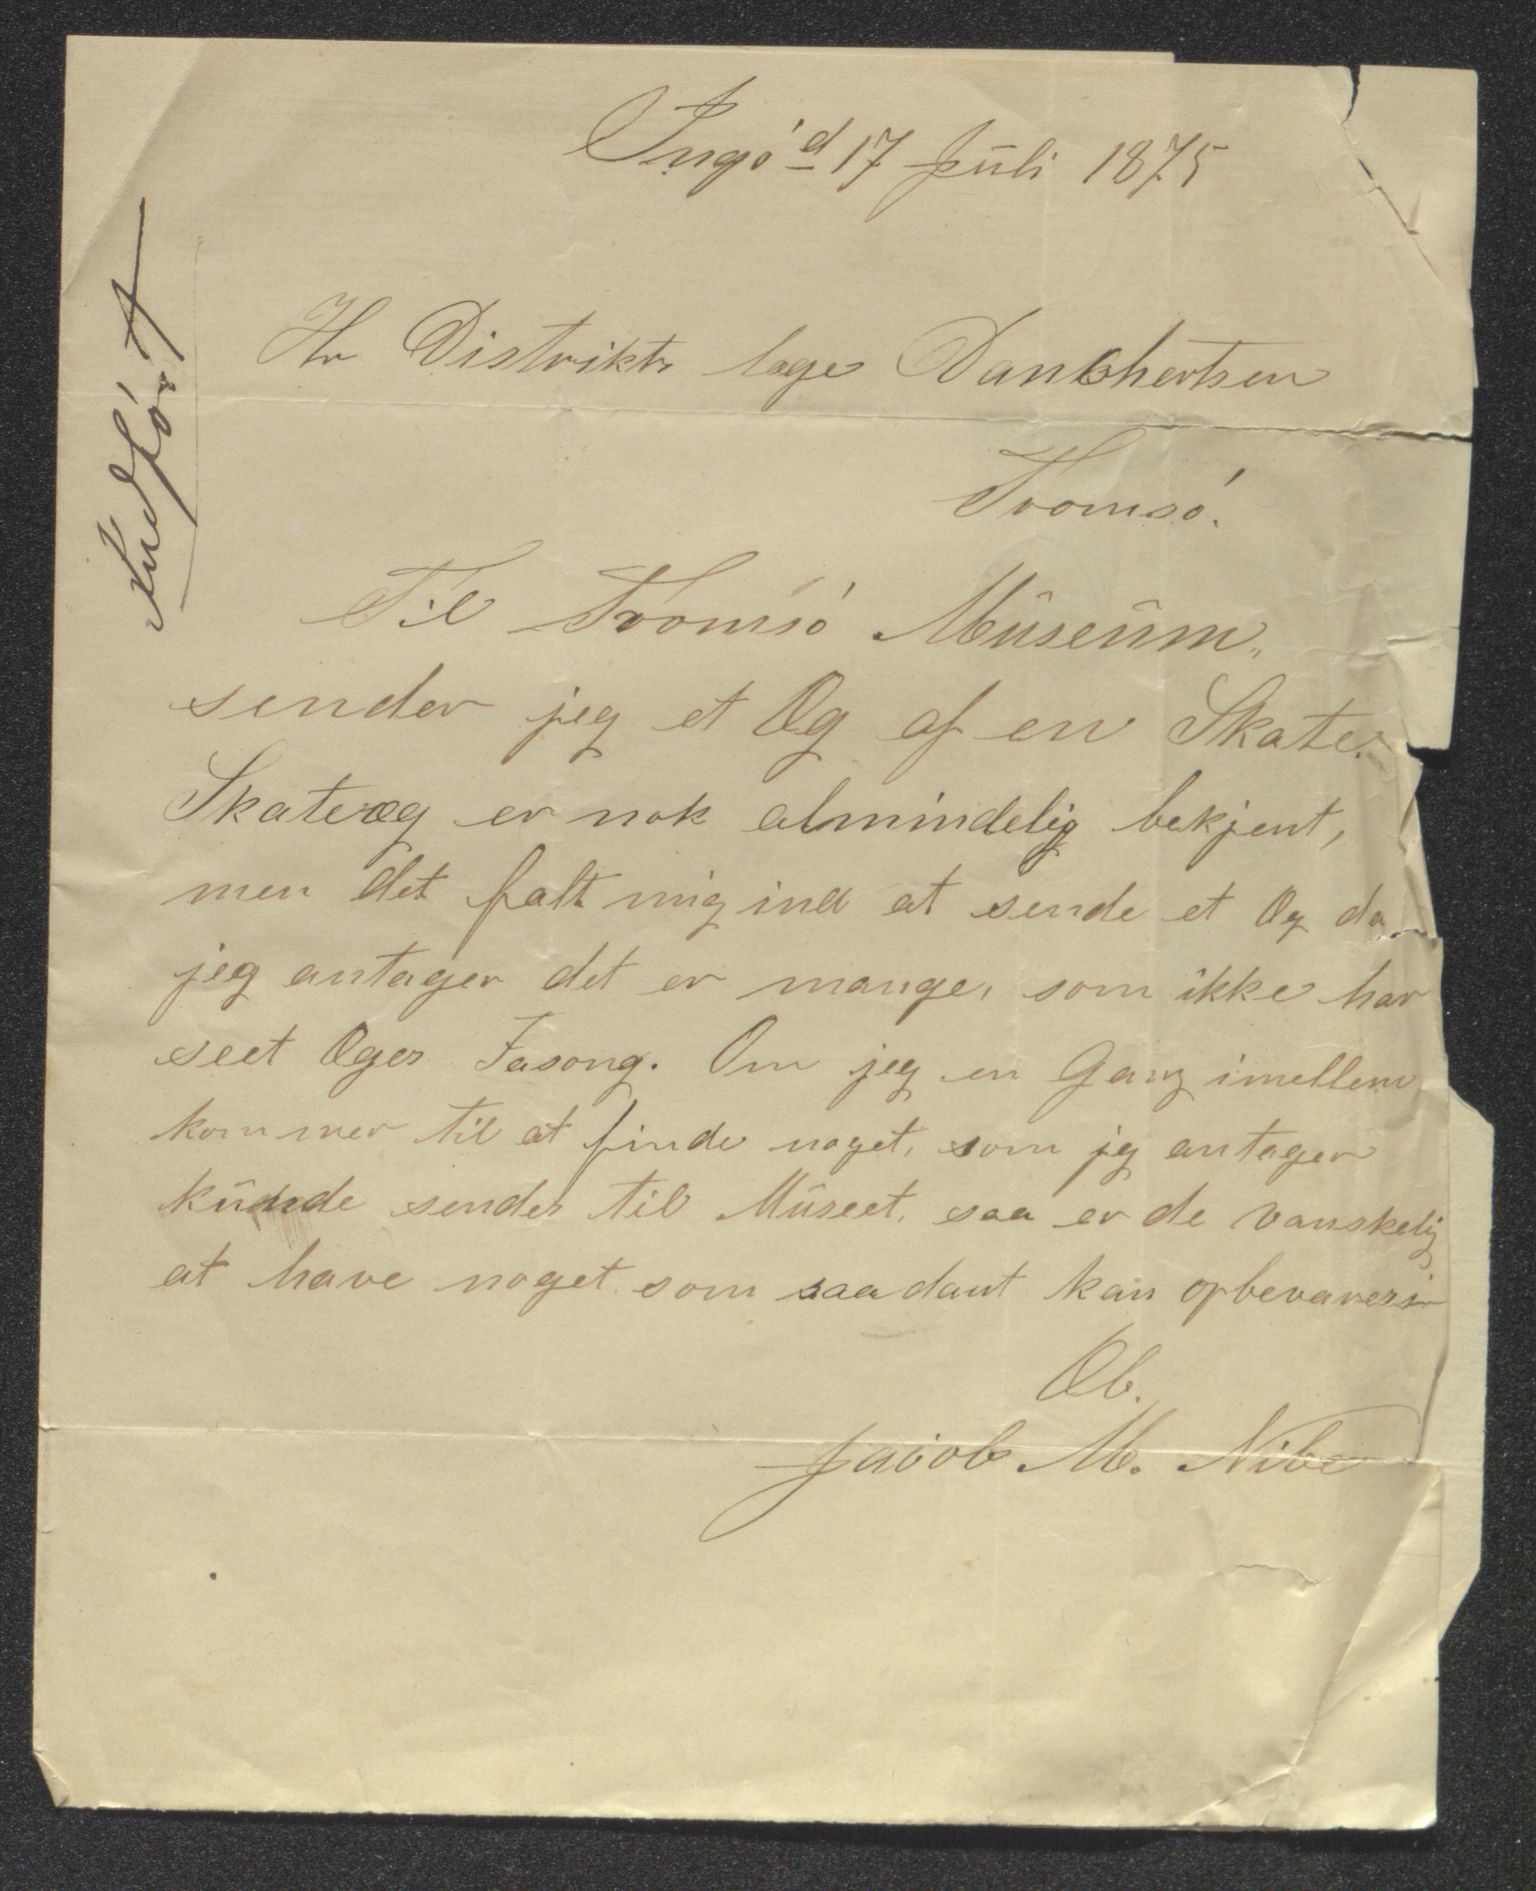 Ingö d 17 Juli 1875
Indført
Hr Distrikts læge Danchertsen
Tromsö.
Til Tromsö Museum„
sender jeg et Æg af en Skate.
Skateæg er nok almindelig bekjent,
men det falt mig ind at sende et Æg da
jeg antager det er mange, som ikke har
seet Æges Fasong. Om jeg en Gang imellem
kommer til at finde noget, som jeg antager
kunde sendes til Museet, saa er de vanskelig
at have noget som saadant kan opbevares i
Æb.
Jacob M. Nibe